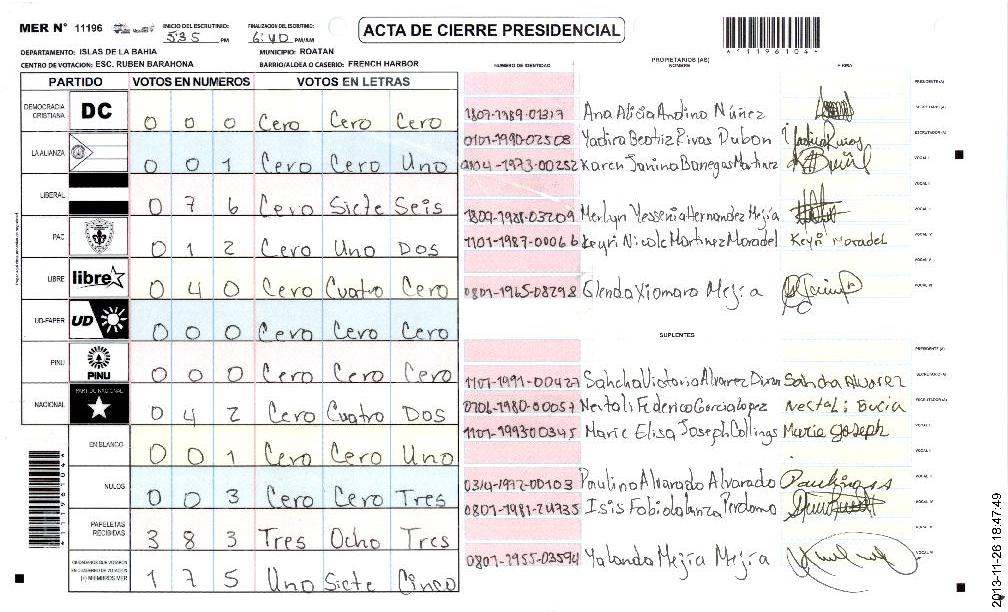 MER N° 11196
INICIO DEL ESCRUTINIO: 535 PM
FINALIZACION DEL ESCRUTINIO: 6:40 PM/AM
ACTA DE CIERRE PRESIDENCIAL
*11196104*
DEPARTAMENTO: ISLAS DE LA BAHIA
MUNICIPIO: ROATAN
CENTRO DE VOTACION: ESC. RUBEN BARAHONA
BARRIO/ALDEA O CASERIO: FRENCH HARBOR
PARTIDO VOTOS EN NUMEROS VOTOS EN LETRAS
DEMOCRACIA CRISTIANA DC 0 0 0 Cero Cero Cero
LA ALIANZA 0 0 1 Cero Cero Uno
LIBERAL 0 7 6 Cero Siete Seis
PAC 0 1 2 Cero Uno Dos
LIBRE libre 0 4 0 Cero Cuatro Cero
UD-FAPER UD 0 0 0 Cero Cero Cero
PINU PINU 0 0 0 Cero Cero Cero
NACIONAL PARTIDO NACIONAL 0 4 2 Cero Cuatro Dos
EN BLANCO 0 0 1 Cero Cero Uno
NULOS 0 0 3 Cero Cero Tres
PAPELETAS RECIBIDAS 3 8 3 Tres Ocho Tres
CIUDADANOS QUE VOTARON EN CUADERNO DE VOTACION (+) MIEMBROS MER 1 7 5 Uno Siete Cinco
*11196104*
PROPIETARIOS (AS)
NUMERO DE IDENTIDAD NOMBRE FIRMA
PRESIDENTE (A)
Ana Alicia Andino Núñez SECRETARIO (A)
0101-1990-02508 Yadira Beatriz Rivas Dubon Yadira Rivas ESCRUTADOR (A)
Karen Janina Banegas Martinez VOCAL I
VOCAL II
1809-1988-03209 Merlyn Yessenia Hernandez Mejía
1101-1987-00066 Keyri Nicole Martinez Moradel Keyri Moradel VOCAL IV
VOCAL V
0801-1965-08298 Glenda Xiomara Mejía VOCAL VI
SUPLENTES
PRESIDENTE (A)
1101-1991-00427 Sahcha Victoria Alvarez Diran Sahcha Alvarez SECRETARIO (A)
Nectali Federico Garcia Lopez ESCRUTADOR (A)
1101-199300345 Marie Elisa Joseph Collings Marie Joseph VOCAL I
VOCAL II
0314-1972-00103 Paulino Alvarado Alvarado
0801-1981-24735 Isis Fabiola Lanza Perdomo
0801-1955-03594 Yolanda Mejía Mejía
2013-11-26 18:47:49